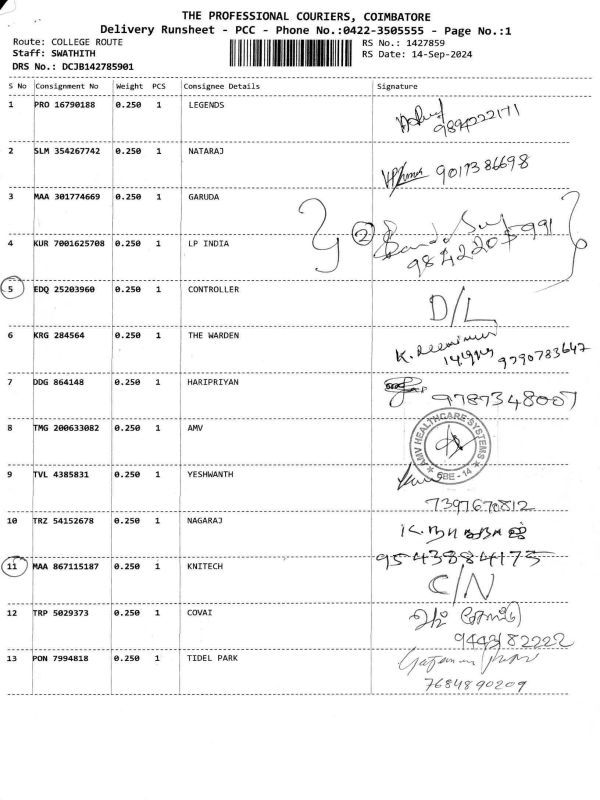 THE PROFESSIONAL COURIERS, COIMBATORE
Delivery Runsheet - PCC - Phone No.:0422-3505555 - Page No.:1
Route: COLLEGE ROUTE RS No.: 1427859
Staff: SWATHITH RS Date: 14-Sep-2024
DRS No.: DCJB142785901
S No Consignment No Weight PCS Consignee Details Signature
1 PRO 16790188 0.250 1 LEGENDS
2 SLM 354267742 0.250 1 NATARAJ
9017386698
3 MAA 301774669 0.250 1 GARUDA
2
4 KUR 7001625708 0.250 1 LP INDIA
9842205991
5 EDQ 25203960 0.250 1 CONTROLLER
D/L
6 KRG 284564 0.250 1 THE WARDEN
K. 9790783647
7 DDG 864148 0.250 1 HARIPRIYAN
9787348007
8 TMG 200633082 0.250 1 AMV
AMV HEALTHCARE SYSTEMS
CBE - 14
9 TVL 4385831 0.250 1 YESHWANTH
7397670812
10 TRZ 54152678 0.250 1 NAGARAJ
K. நாகராஜ்
9543884175
11 MAA 867115187 0.250 1 KNITECH
C/N
12 TRP 5029373 0.250 1 COVAI
9443182222
13 PON 7994818 0.250 1 TIDEL PARK
7684890209